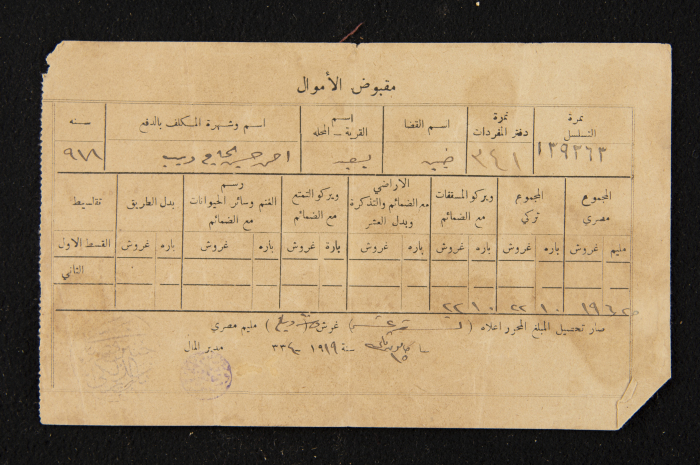 مقبوض الأموال
نمرة التسلسل
نمرة دفتر المفردات
اسم القضا
اسم القرية ـ المحله
اسم وشهرة المكلف بالدفع
سنه
١٣٩٢٦٣
٣٤١
جنين
احمد حسين
المجموع مصري
المجموع تركي
ويركو المسقفات مع الضمائم
الاراضي مع الضمائم والتذكرة وبدل العشر
ويركو التمتع مع الضمائم
رسم الغنم وسائر الحيوانات مع الضمائم
بدل الطريق
تقاسيط
مليم غروش باره غروش باره غروش باره غروش باره غروش باره غروش باره غروش القسط الاول
الثاني
١٠ ٢٢ ١٠ ٢٢
صار تحصيل المبلغ المحرر اعلاه ( ) غرش ( ) مليم مصري
سنة ١٩١٩ ٣٣٤ مدير المال